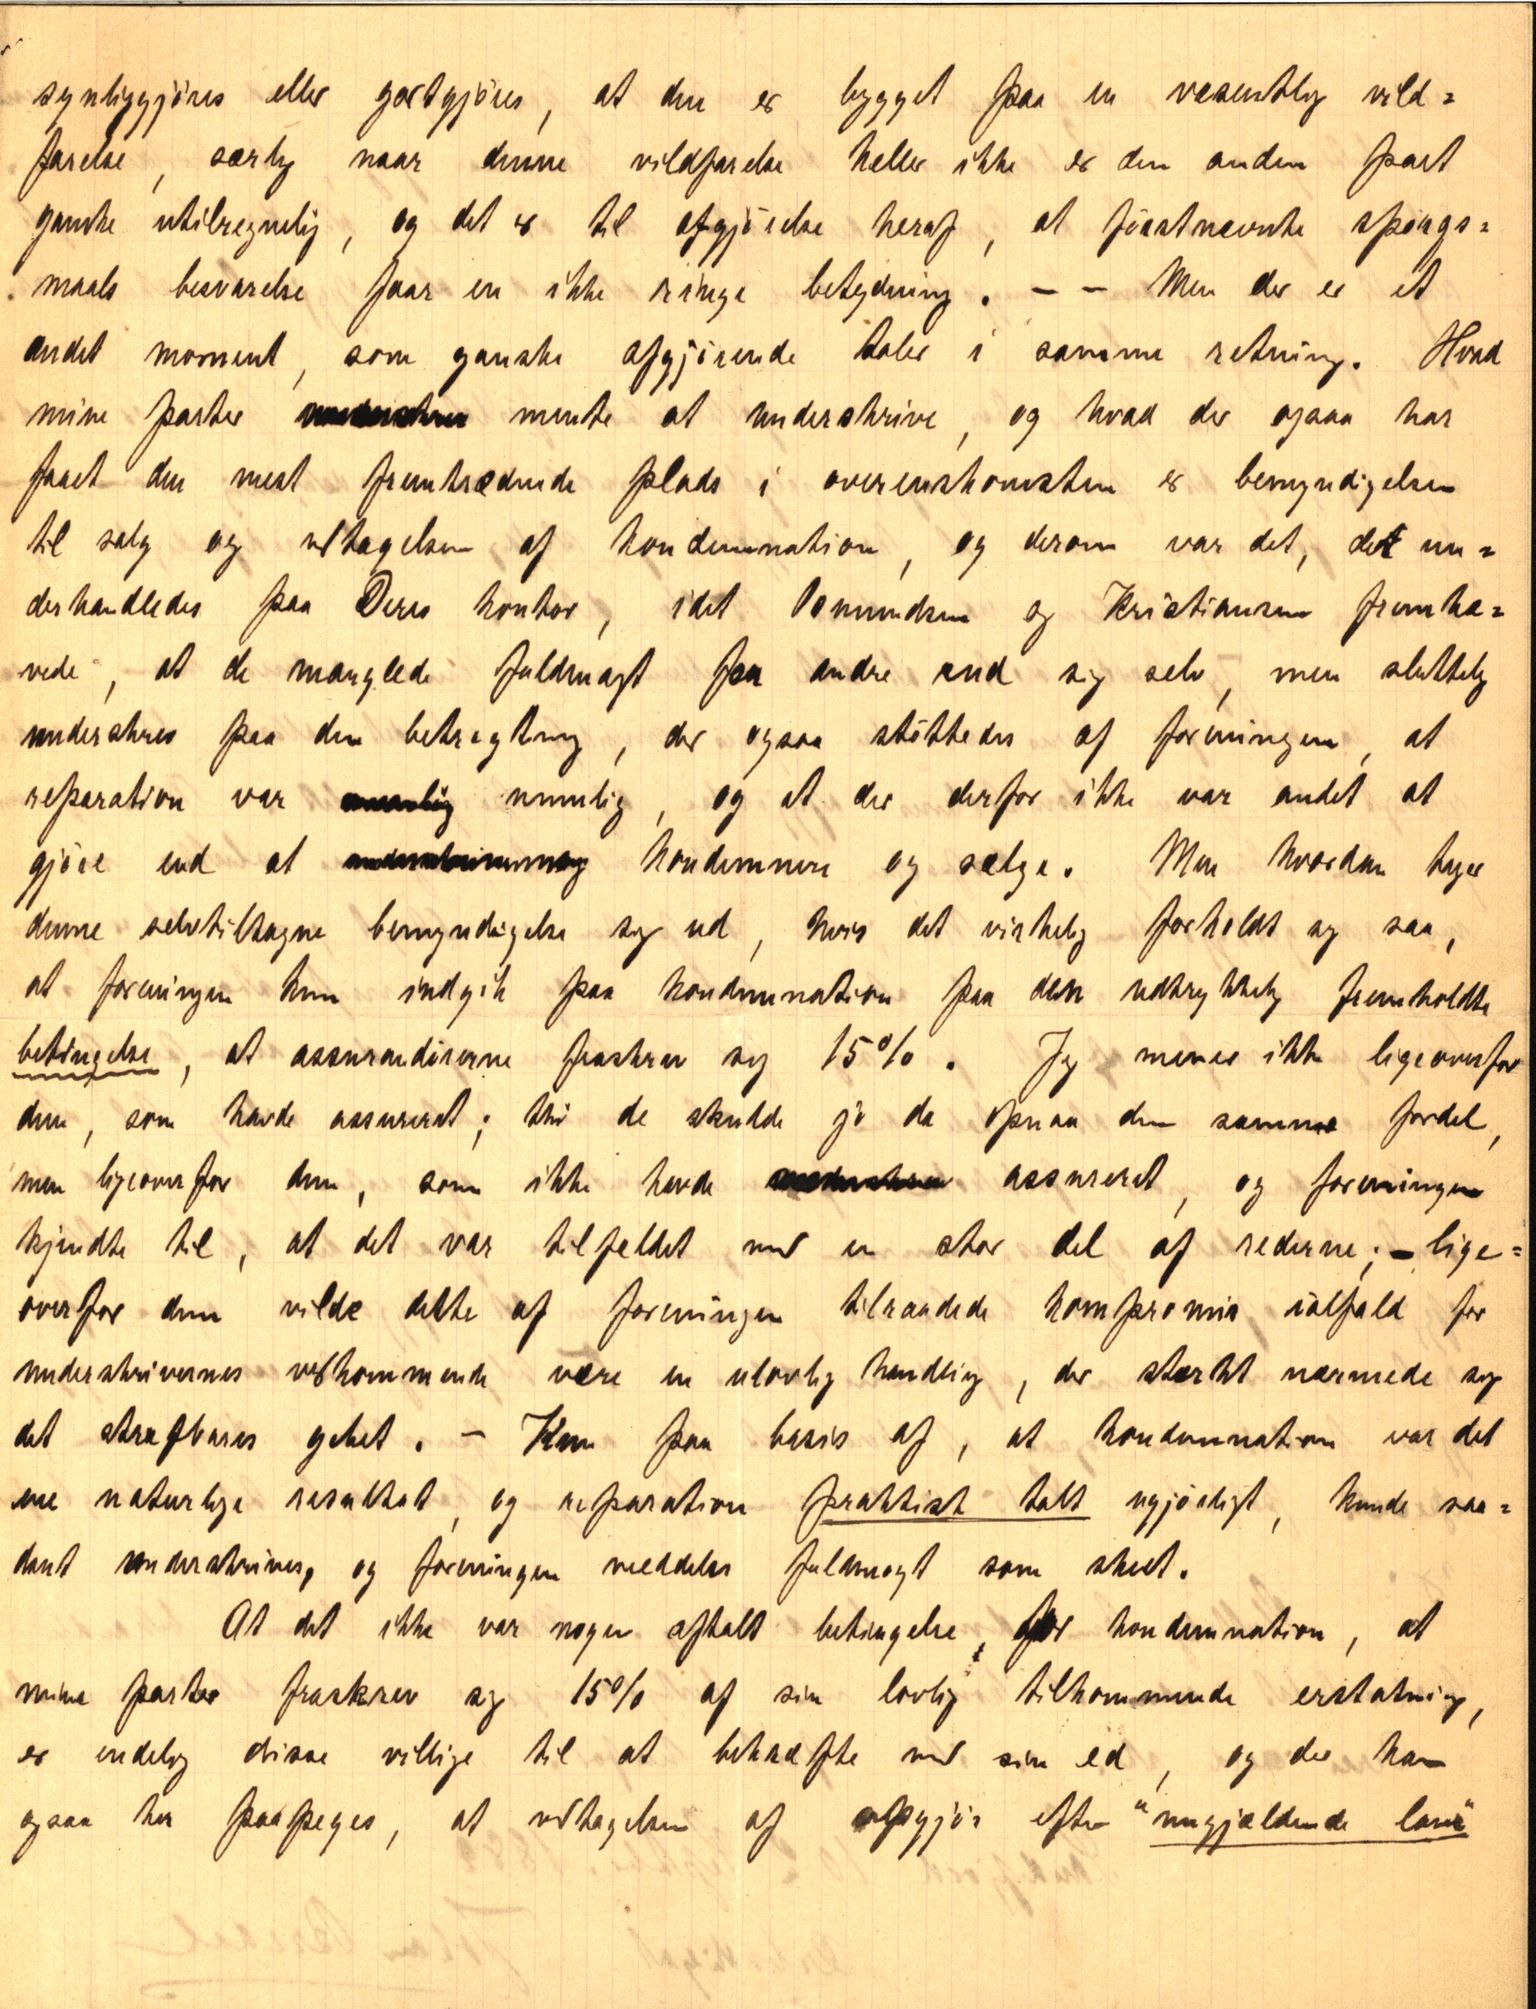 synliggjöres eller godtgjöres, at den er bygget paa en væsentlig vild=
farelse, særlig naar denne vildfarelse heller ikke er den anden part
ganske utilregnelig, og det er til afgjörelse heraf, at förstnævnte spörgs=
maals besvarelse faar en ikke ringe betydning. – – Men der er et
andet moment, som ganske afgjörende taler i samme retning. Hvad
mine parter mente at underskrive, og hvad der ogsaa har
faaet den mest fremtrædende plads i overenskomsten er bemyndigelsen
til salg og vedtagelsen af kondemnation, og derom var det, det un=
derhandledes paa Deres kontor, idet Osmundsen og Kristiansen fremhæ=
vede, at de manglede fuldmagt fra andre end sig selv, men sluttelig
underskrev paa den betragtning, der ogsaa stöttedes af foreningen, at
reparation var umulig, og at der derfor ikke var andet at
gjöre end at kondemnere og sælge. Men hvordan tager
denne selvtiltagne bemyndigelse sig ud, hvis det virkelig forholdt sig saa,
at foreningen kun indgik paa kondemnation paa den udtrykkelig fremholdte
betingelse, at assurandörerne fraskrev sig 15%. Jeg mener ikke ligeoverfor
dem, som havde assureret; thi de skulde jo da opnaa den samme fordel,
men ligeoverfor dem, som ikke havde assureret, og foreningen
kjendte til, at det var tilfældet med en stor del af rederne; – lige=
overfor dem vilde dette af foreningen tilraadede kompromis ialfald for
underskrivernes vedkommende være en ulovlig handling, der stærkt nærmede sig
det strafbares gebet. – Kun paa basis af, at kondemnation var det
ene naturlige resultat, og reparation praktisk talt ugjörligt, kunde saa=
dant underskrives, og foreningen meddeles fuldmagt som skeet.
At det ikke var nogen aftalt betingelse for kondemnation, at
mine parter fraskrev sig 15% af sin lovlig tilkommende erstatning,
er endelig disse villige til at bekræfte med sin ed, og der kan
ogsaa her paapeges, at vedtagelsen af opgjör efter "nugjældende love"